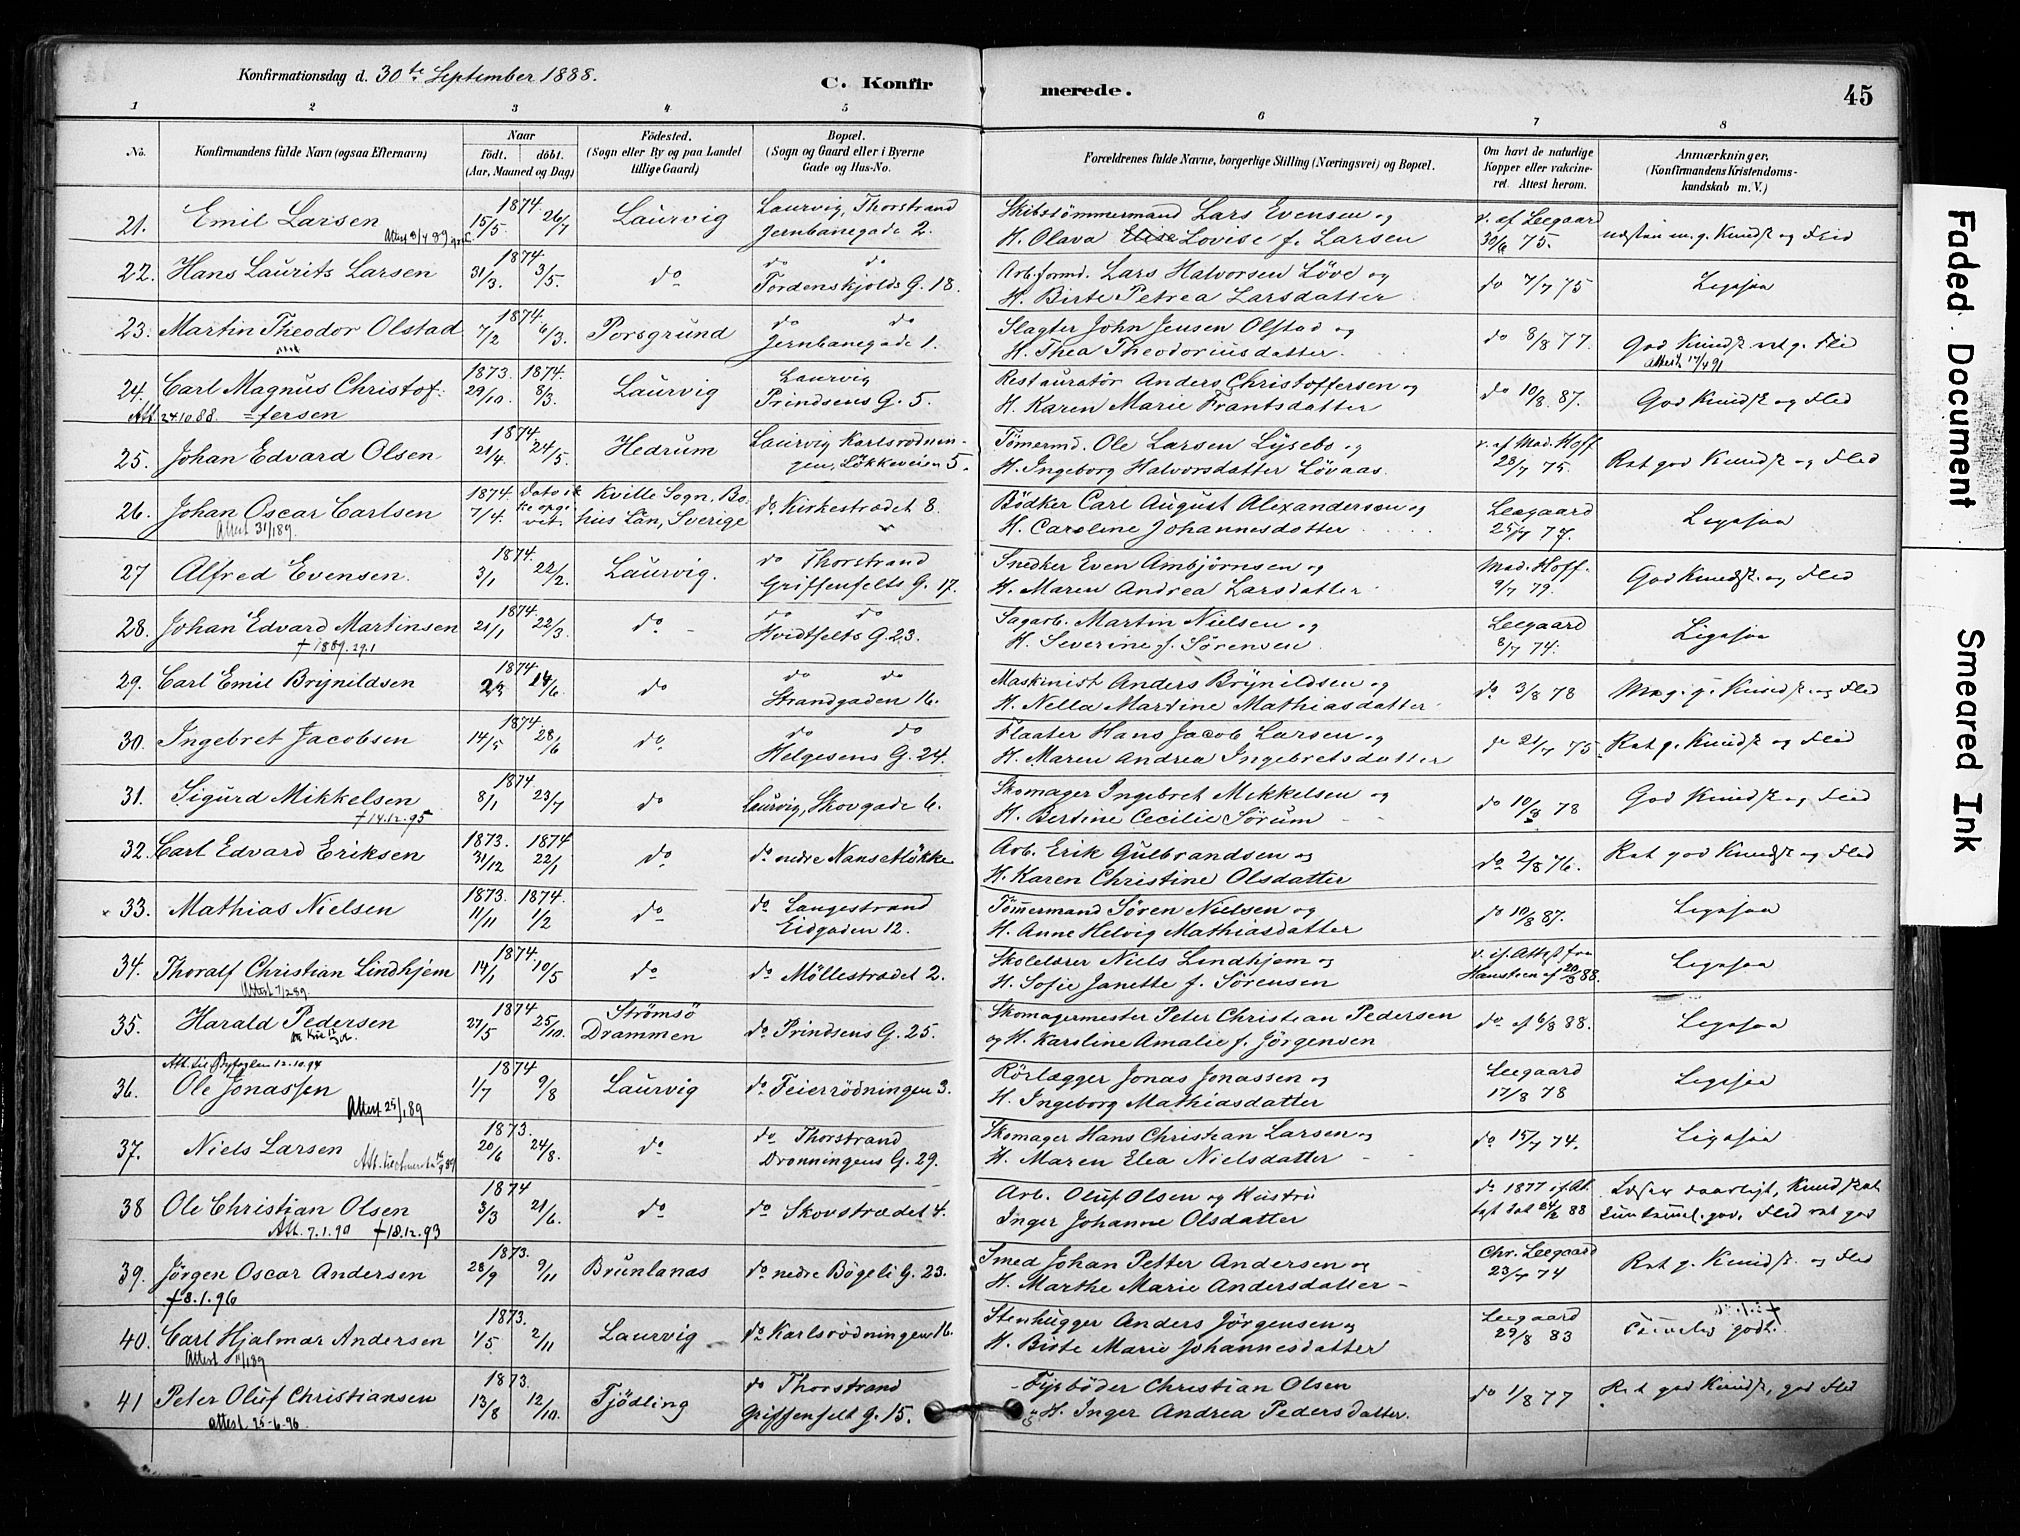 Konfirmationsdag d. 30te September 1888.
C. Konfirmerede.
45
1 2 3 4 5 6 7 8
No.
Konfirmandens fulde Navn (ogsaa Efternavn)
Naar
födt. döbt.
(Aar, Maaned og Dag)
Födested.
(Sogn eller By og paa Landet
tillige Gaard)
Bopæl.
(Sogn og Gaard eller i Byerne
Gade og Hus-No.
Forældrenes fulde Navne, borgerlige Stilling (Næringsvei) og Bopæl.
Om havt de naturlige
Kopper eller vakcine-
ret. Attest herom.
Anmærkninger,
(Konfirmandens Kristendoms-
kundskab m. V.)
21. Emil Larsen 1874 15/5 26/7 Laurvig Laurvig, Thorstrand
Jernbanegade 2.
Skibstömmermand Lars Evensen og
H. Olava Elise Lovise f. Larsen
v. af Leegaard
30/6 75.
næsten m. g. Kundsk og Flid
22. Hans Laurits Larsen 1874 31/3. 3/5. do do do
Tordenskjolds G. 18.
Arb.formd. Lars Halvorsen Löve og
H. Birte Petrea Larsdatter
do 7/7 75 Ligesaa
23. Martin Theodor Olstad 1874. 7/2 6/3. Porsgrund do do
Jernbanegade 1.
Slagter John Jensen Olstad og
H. Thea Theodoriusdatter.
do 8/8 77.
God Kundsk
Attest 17/4 91
24. Carl Magnus Christof-
fersen
Att. 24.10.88.
1873. 1874.
29/10. 8/3. Laurvig Laurvig
Prindsens G. 5.
Restauratör Anders Christoffersen og
H. Karen Marie Frantsdatter
do 10/8. 87. God Kundsk og Flid
25. Johan Edvard Olsen 1874. 21/4. 24/5. Hedrum Laurvig Karlsrödnin-
gen, Lökkeveien 5.
Tömermd. Ole Larsen Lysebo og
H. Ingeborg Halvorsdatter Lövaas.
v. af Mad. Hoff
28/7 75. Rat god Kundsk og Flid
26. Johan Oscar Carlsen
Attest 31/1 89.
1874. 7/4. Dato ik
ke opgi
vet.
Kville Sogn, Bo-
hus Län, Sverige
do Kirkestrædet 8.
Bödker Carl August Alexandersson og
H. Caroline Johannesdotter
Leegaard
25/7 77. Ligesaa
27 Alfred Evensen. 1874. 3/1 22/2. Laurvig. do Thorstrand
Griffenfelts G. 17.
Snedker Even Ambjörnsen og
H. Maren Andrea Larsdatter
Mad. Hoff.
9/7 79. God Kundsk. og Flid
28. Johan Edvard Martinsen
† 1889. 29.1
1874. 21/1 22/3. do do do
Hvidtfelts G. 23.
Sagarb. Martin Nielsen og
H. Severine f. Sörensen
Leegaard
8/7 74. Ligesaa
29. Carl Emil Brynildsen 1874. 14/6. do do do
Strandgaden 16.
Maskinist Anders Brynildsen og
H. Nella Martine Mathiasdatter
do 3/8 78 Meg. g. Kundsk. og Flid
30. Ingebret Jacobsen 1874. 14/5 28/6 do do do
Helgesens G. 24.
Flaater Hans Jacob Larsen og
H. Maren Andrea Ingebretsdatter
do 21/7 75 Rat g. Kundsk og Flid
31. Sigurd Mikkelsen
† 14.12.95
1874 8/1 23/7 do Laurvig, Skovgade 6.
Skomager Ingebret Mikkelsen og
H. Bertine Cecilie Sörum
do 10/8 78 God Kundsk og Flid
32. Carl Edvard Eriksen 1873. 31/12 1874 22/1 do do nedre Nansetlökke
Arb. Erik Gulbrandsen og
H. Karen Christine Olsdatter
do 2/8 76. Rat god Kundsk og Flid
33. Mathias Nielsen 1873. 11/11 1874. 1/2 do do Langestrand
Eidgaden 12.
Tömmermand Sören Nielsen og
H. Anne Helvig Mathiasdatter
do 10/8. 87. Ligesaa
34. Thoralf Christian Lindhjem
Attest 7/2 89.
1874. 14/1 10/5 do do Möllestrædet 2.
Skolelærer Niels Lindhjem og
H. Sofie Janette f. Sörensen
v. if. Attest fra
Hansteen af 20/3 88. Ligesaa
35. Harald Pedersen 1874 27/5 25/10. Strömsö
Drammen do Prindsens G. 25.
Skomagermester Peter Christian Pedersen
og H. Karoline Amalie f. Jörgensen
do af 6/8 88. Ligesaa
Att. til Byfogden 12.10.94
36. Ole Jonassen
Attest 25/1 89
1874 1/7 9/8 Laurvig do Feierrödningen 3.
Rörlægger Jonas Jonassen og
H. Ingeborg Mathiasdatter
Leegaard
17/8 78 Ligesaa
37. Niels Larsen 1873. 20/6 24/8. do do Thorstrand
Dronningens G. 29.
Skomager Hans Christian Larsen og
H. Maren Elea Nielsdatter
do 15/7 74. Ligesaa
38 Ole Christian Olsen
Att. 7.1.90 † 18.12.93
1874 3/3 21/6. do do Skovstrædet 4.
Arb. Oluf Olsen og Hustru
Inger Johanne Olsdatter
do 1877 if. At-
test dat 24/2 88
Læser daarligt, Kundsk
god, Flid rat god
39. Jörgen Oscar Andersen
† 8.1.96
1873. 28/9 9/11 Brunlanæs do nedre Bögeli G. 23.
Smed Johan Petter Andersen og
H. Marthe Marie Andersdatter
Chr. Leegaard
23/7 74 Rat g. Kundsk. og Flid
40. Carl Hjalmar Andersen
Attest 11/1 89
1873. 1/5 2/11 Laurvig do Karlsrödningen 16.
Stenhugger Anders Jörgensen og
H. Birte Marie Johannesdatter
Leegaard
29/8 83 godt.
41 Peter Oluf Christiansen
Attest 25-6-96.
1873. 13/8 12/10. Tjödling do Thorstrand
Griffenfelt G. 15.
Fyrböder Christian Olsen
og H. Inger Andrea Pedersdatter.
do 1/8 77 Rat god Kundsk, god Flid
Faded Document
Smeared Ink